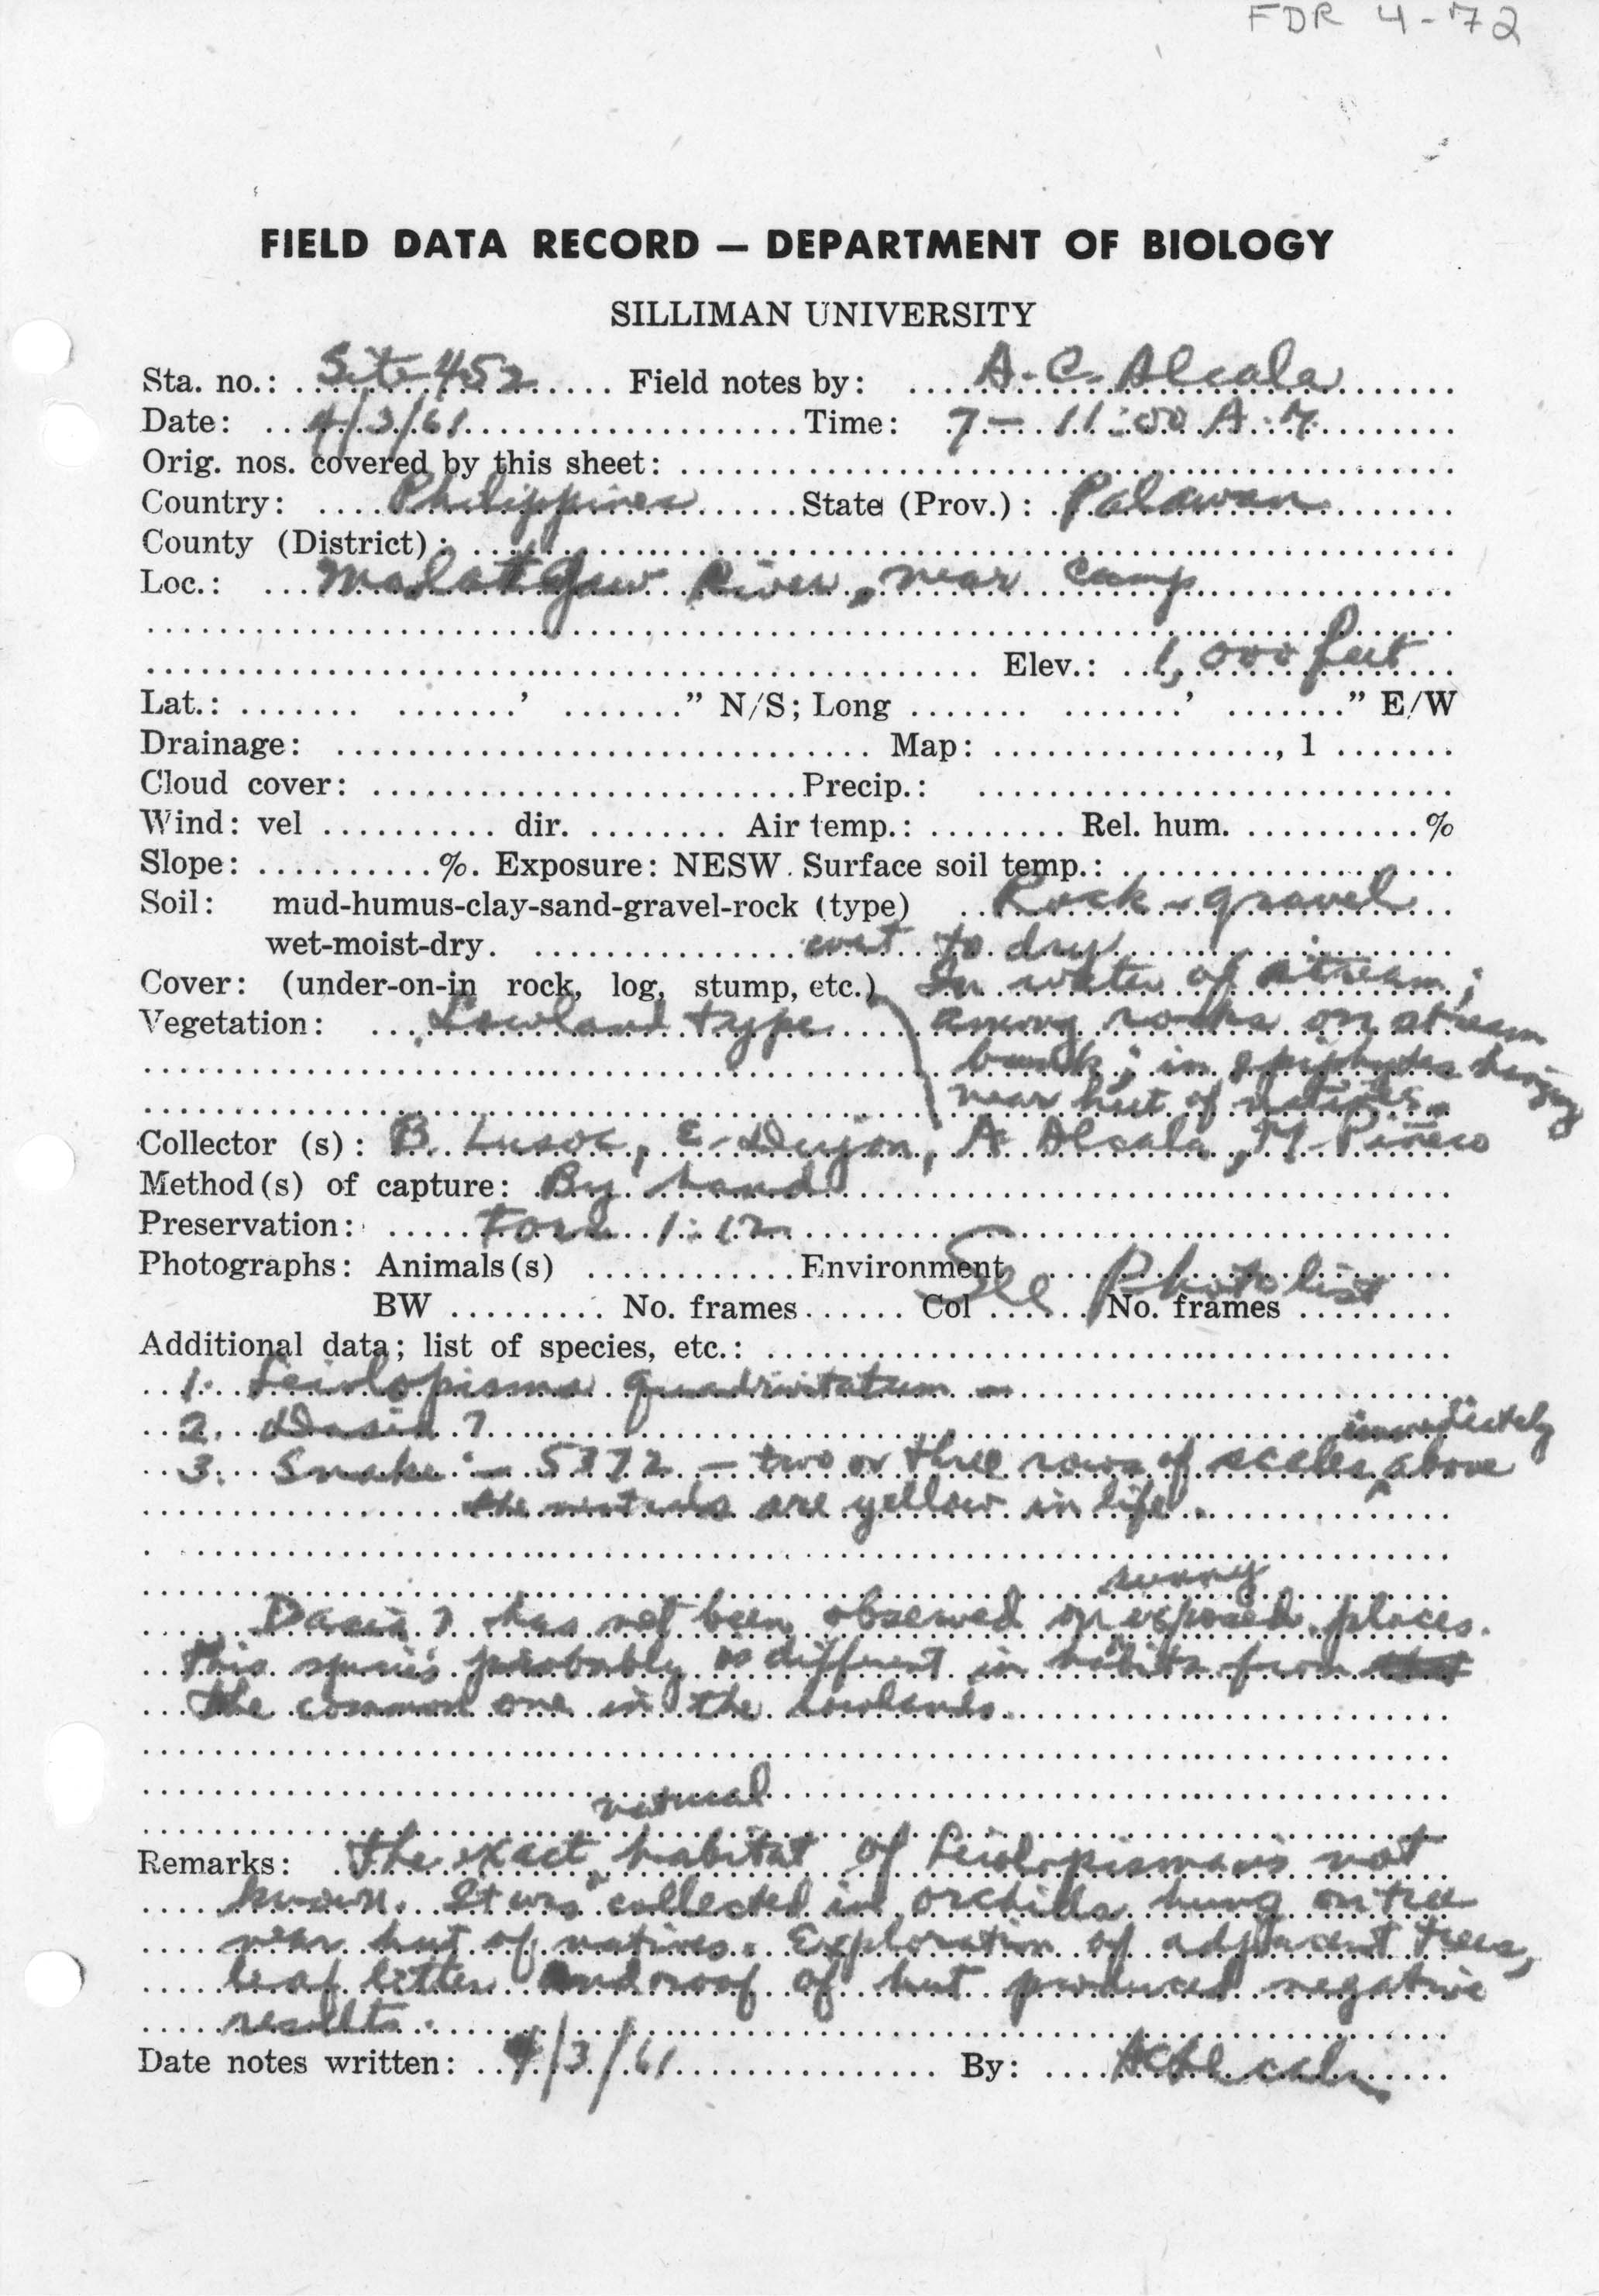 FDR 4-72
FIELD DATA RECORD — DEPARTMENT OF BIOLOGY
SILLIMAN UNIVERSITY
Sta. no.: Site 452 Field notes by: A. C. Alcala
Date: 4/3/61 Time: 7 - 11:00 A.M.
Orig. nos. covered by this sheet:
Country: Philippines State (Prov.): Palawan
County (District):
Loc.: Malatgaw River, near camp
Elev.: 1,000 feet
Lat.: ' " N/S; Long ' " E/W
Drainage: Map: , 1
Cloud cover: Precip.:
Wind: vel dir. Air temp.: Rel. hum. %
Slope: %. Exposure: NESW. Surface soil temp.:
Soil: mud-humus-clay-sand-gravel-rock (type) Rock - gravel
wet-moist-dry. wet to dry
Cover: (under-on-in rock, log, stump, etc.) In water of stream;
Vegetation: Lowland type among rocks on stream
bank; in epiphytes hanging
near hut of natives.
Collector (s): B. Lusoc, E. Dujon, A. Alcala, M. Piñero
Method(s) of capture: By hand
Preservation: Form 1:12
Photographs: Animals(s) Environment See Photo list
BW No. frames Col No. frames
Additional data; list of species, etc.:
1. Leiolopisma quadrivittatum -
2. Dasia ?
3. Snake - 5372 - two or three rows of scales immediately above
the ventrals are yellow in life.
Dasia ? has not been observed on sunny exposed places.
This species probably is different in habits from
the common one in the lowlands.
Remarks: The exact natural habitat of Leiolopisma is not
known. It was collected in orchids hung on tree
near hut of natives. Exploration of adjacent trees,
leaf litter and roof of hut produced negative
results.
Date notes written: 4/3/61 By: ACAlcala